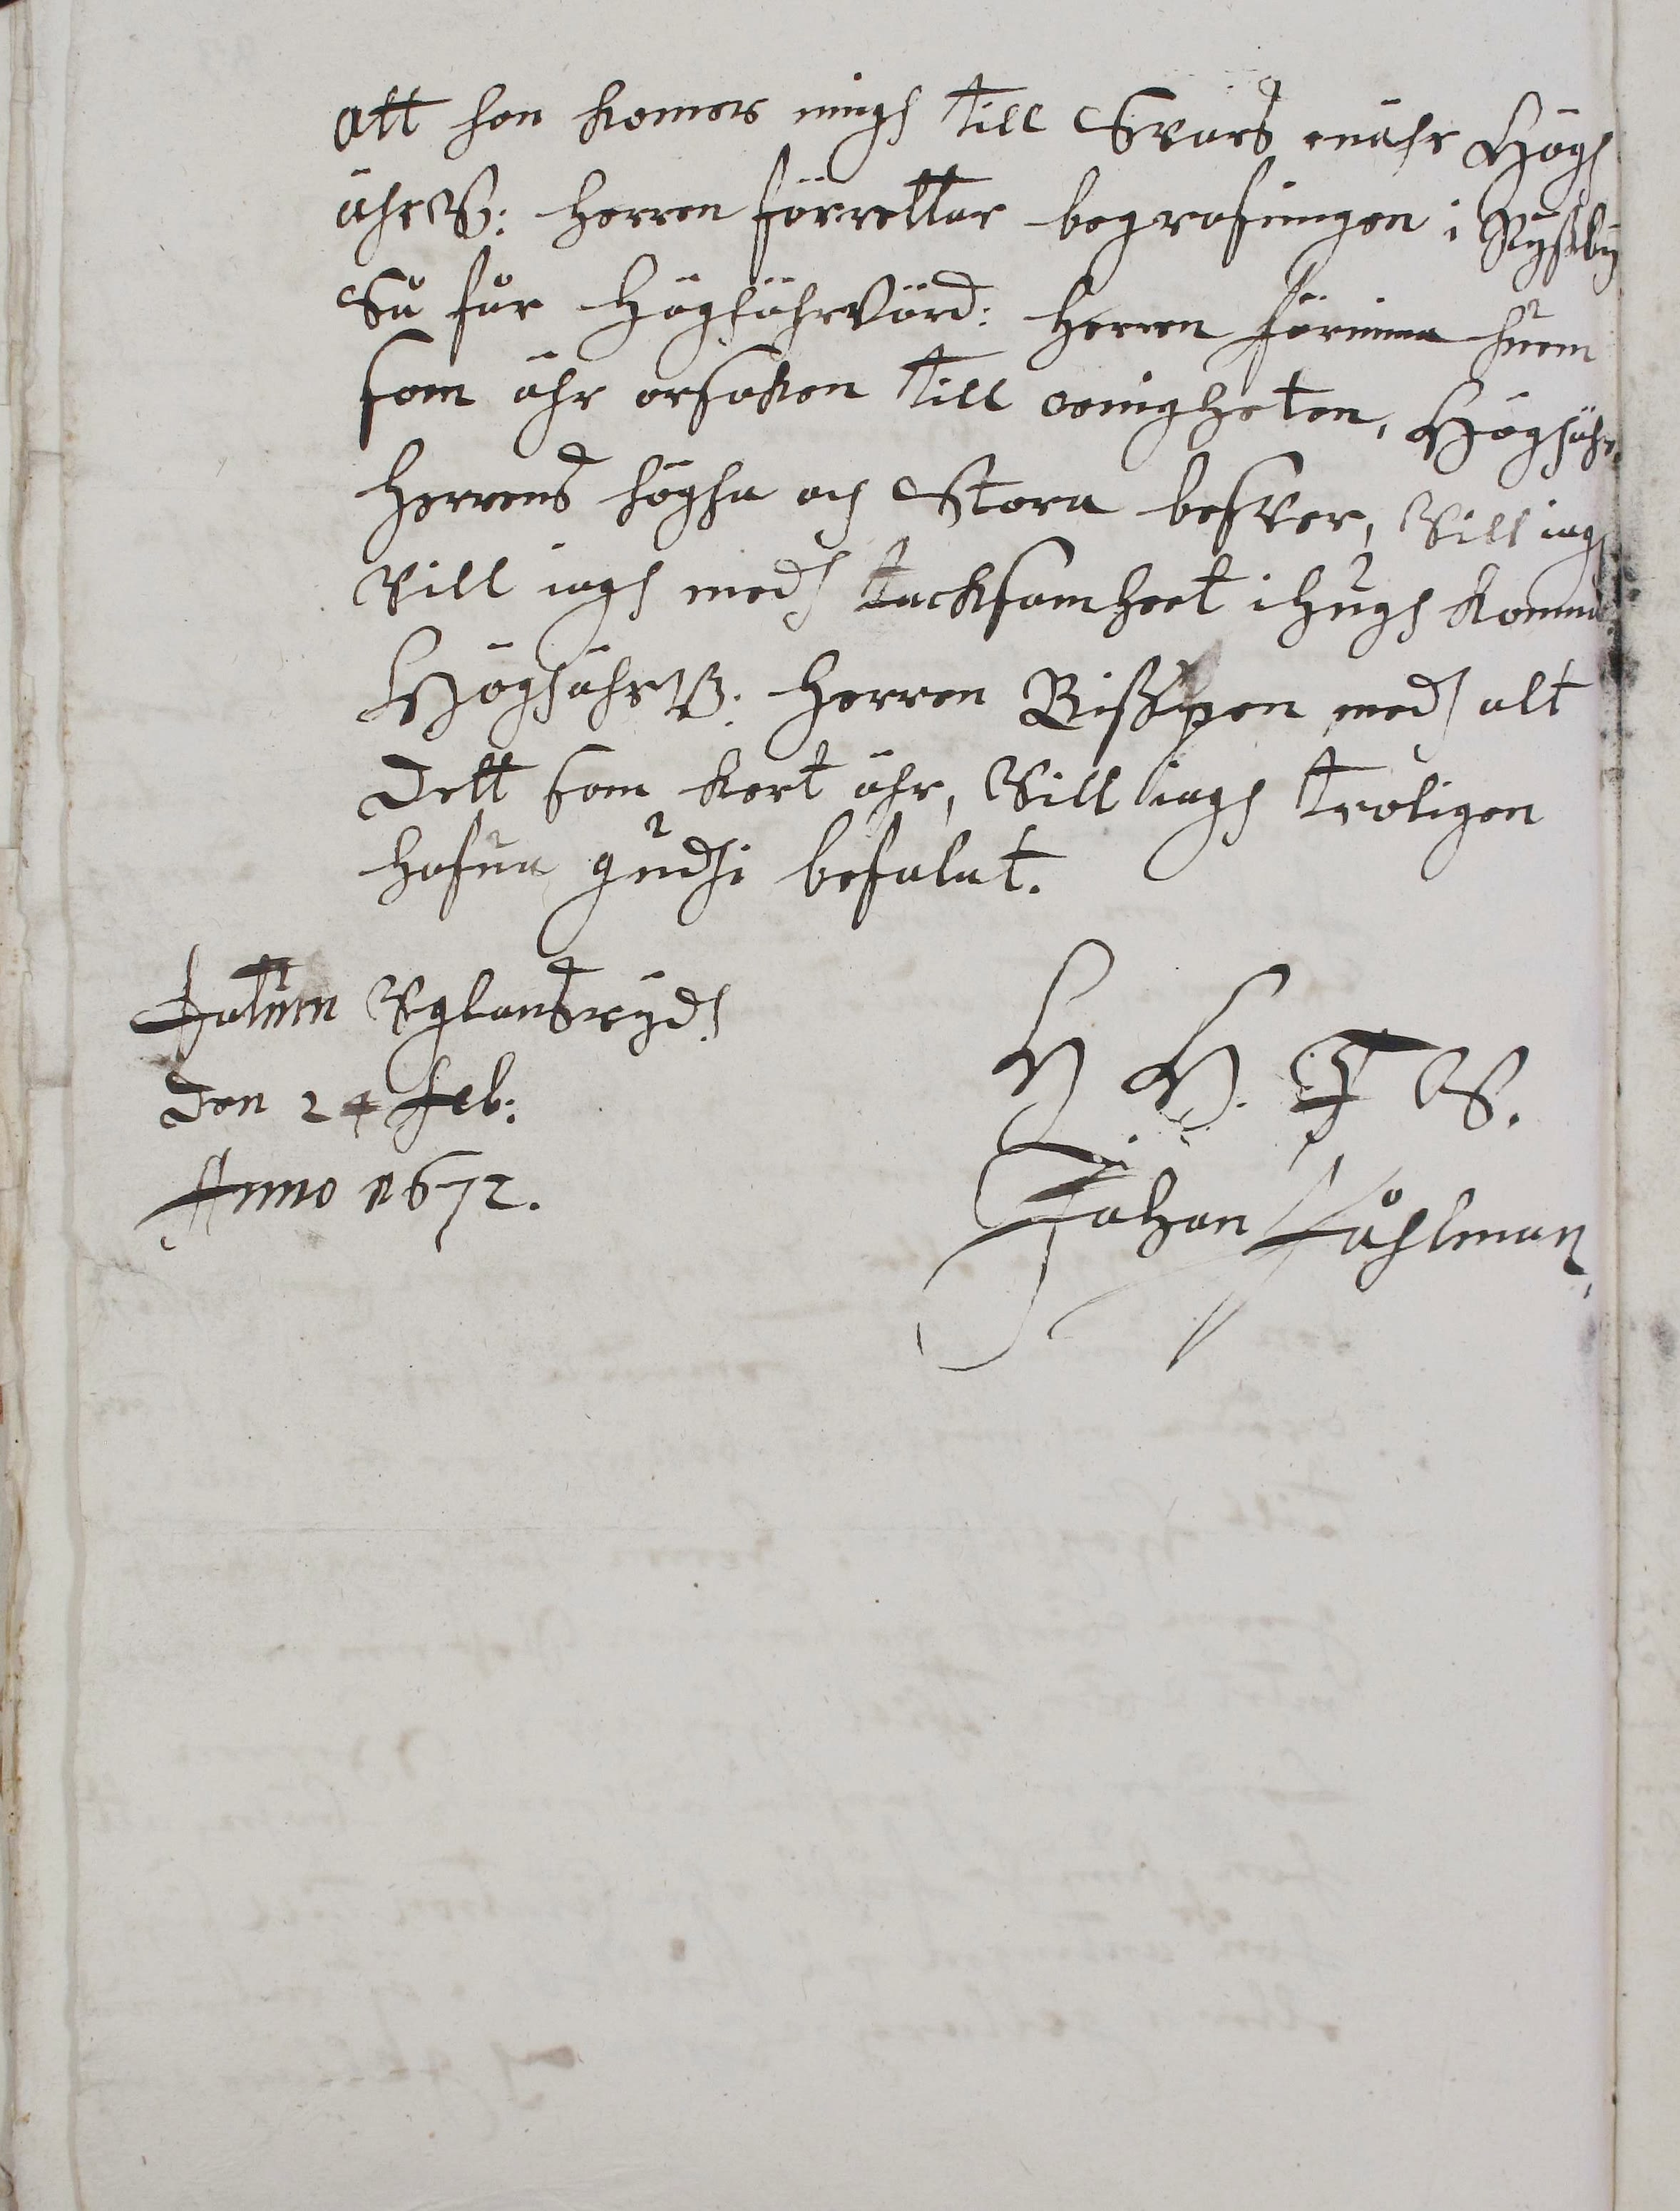 att hon komer migh till Svars nähr Högh
ährW: Herren förrettar begrafningen i Ryssby
Så får HöghährVörd: Herren förnima huem
som ähr orsaken till oenigheten, Höghähr
Herrens högha och Stora besver, Vill iagh
Vill iagh medh tacksamheet ihugh komma
HöghährW: Herren Bisspen medh alt
dett som kert ähr, Vill iagh troligen
hafua gudhi befalat.
Datum Uglansrydh
den 24 Feb:
Anno 1672.
H H. T S.
Johan Påhlman